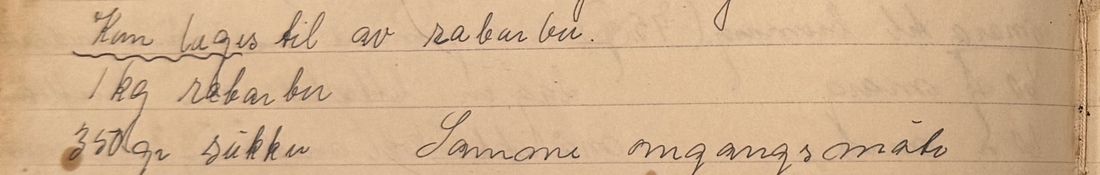 Kan lages til av rabarber.
1 kg rabarber
350 gr sukker Samme omgangsmåte